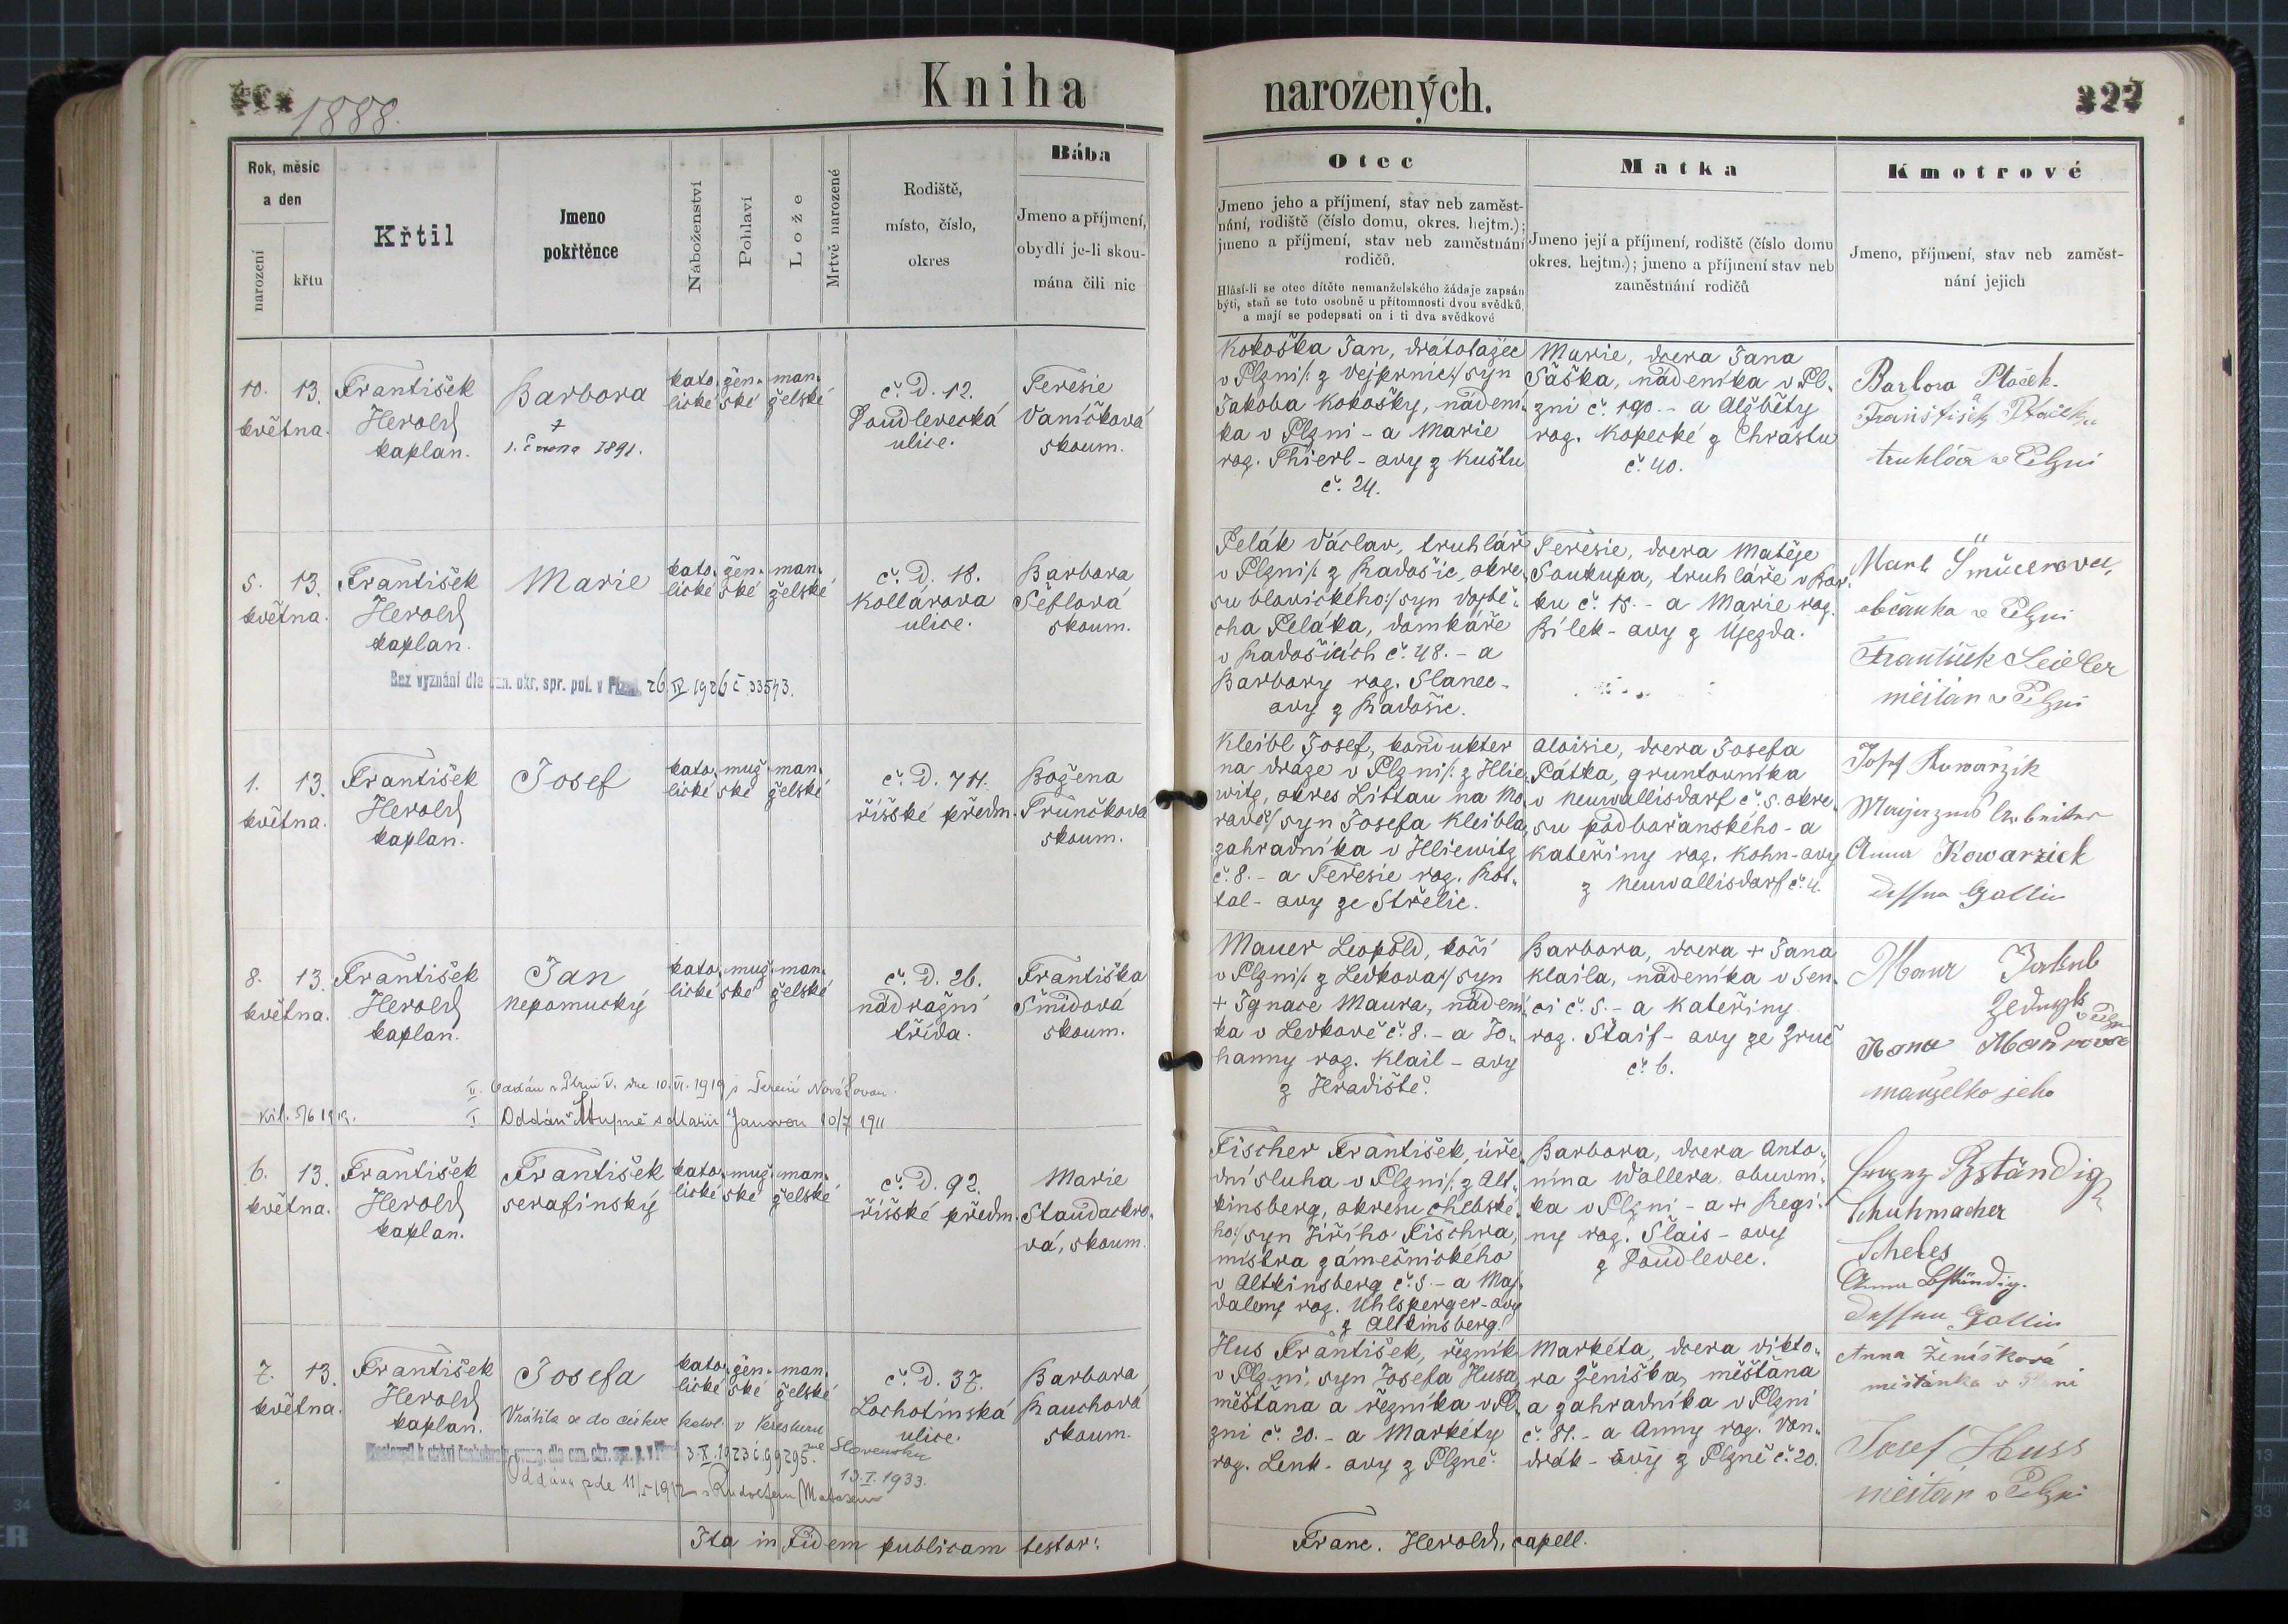 1888.
Kniha
narozených.
327
Rok, měsíc
a den
narození
křtu
Křtil
Jmeno
pokřtěnce
Náboženství
Pohlaví
Lože
Mrtvě narozené
Rodiště,
místo, číslo,
okres
Bába
Jmeno a příjmení,
obydlí je-li skou-
mána čili nic
Otec
Jmeno jeho a příjmení, stav neb zaměst-
nání, rodiště (číslo domu, okres. hejtm.);
jmeno a příjmení, stav neb zaměstnání
rodičů.
Hlásí-li se otec dítěte nemanželského žádaje zapsán
býti, staň se toto osobně u přítomnosti dvou svědků,
a mají se podepsati on i ti dva svědkové
Matka
Jmeno její a příjmení, rodiště (číslo domu
okres. hejtm.); jmeno a příjmení stav neb
zaměstnání rodičů
Kmotrové
Jmeno, příjmení, stav neb zaměst-
nání jejich
10. 13.
května.
František
Herold
kaplan.
Barbora
†
1. června 1891.
kato-
lické
žen-
ské
man-
želské
č. D. 12.
Doudlevecká
ulice.
Teresie
Vaníčková
skoum.
Kokoška Jan, drátotažec
v Plzni /: z Vejprnic :/ syn
Jakoba Kokošky, nádení-
ka v Plzni - a Marie
roz. Thierl - ovy z Kuštu
č. 24.
Marie, dcera Jana
Sáška, nádeníka v Pl-
zni č. 190. - a Alžběty
roz. Kopecké z Chrástu
č. 40.
Barbora Ptáček
František
truhlář v Plzni
5. 13.
května.
František
Herold
kaplan.
Marie
kato-
lické
žen-
ské
man-
želské
č. D. 18.
Kollárova
ulice.
Barbora
Šeflová
skoum.
Bez vyznání dle ozn. okr. spr. pol. v Plzni 26 IV. 1926 č. 33543.
Pelák Václav, truhlář
v Plzni /: z Radošic, okre-
su blovického :/ syn Vojtě-
cha Peláka, domkáře
v Radošicích č. 48. - a
Barbory roz. Slanec-
ovy z Radošic.
Teresie, dcera Matěje
Soukupa, truhláře v Bor-
ku č. 15. - a Marie roz.
Bílek - ovy z Újezda.
občanka v Plzni
František Seidler
měšťan v Plzni
1. 13.
května.
František
Herold
kaplan.
Josef
kato-
lické
muž-
ské
man-
želské
č. D. 711.
říšské předm.
Božena
Trůnčková
skoum.
Kleibl Josef, kondukter
na dráze v Plzni /: z Hlie-
witz, okres Littau na Mo-
ravě :/ syn Josefa Kleibla,
zahradníka v Hliewitz
č. 8. - a Teresie roz. Kot-
tal - ovy ze Střelic.
Aloisie, dcera Josefa
Pátka, gruntovníka
v Neuwallisdorf č. 5. okre-
su podbořanského - a
Kateřiny roz. Kohn - ovy
z Neuwallisdorf č. 4.
Josef Kowarzik
Anna Kowarzick
dessen Gattin
8. 13.
května.
František
Herold
kaplan.
Jan
Nepomucký
kato-
lické
muž-
ské
man-
želské
č. D. 26.
nádražní
třída.
Františka
Šmídová
skoum.
II. Oddán v Plzni V. dne 10. VI. 1919 s Terezií Novákovou.
I. Oddán s Marií Janovou 10/7 1911
Mauer Leopold, kočí
v Plzni /: z Ledkova :/ syn
+ Ignace Maura, nádení-
ka v Ledkově č. 8. - a Jo-
hanny roz. Klail - ovy
z Hradiště.
Barbora, dcera + Jana
Klaila, nádeníka v Sen-
ci č. 5. - a Kateřiny
roz. Štaif - ovy ze Zruč
č. 6.
Maur Jakub
zedník v Plzni
manželka jeho
6. 13.
května.
František
Herold
kaplan.
František
serafinský
kato-
lické
muž-
ské
man-
želské
č. D. 92.
říšské předm.
Marie
Staudackro-
vá, skoum.
Fischer František, úře-
dní sluha v Plzni /: z Alt-
kinsberg, okresu chebské-
ho :/ syn Jiřího Fischra,
mistra zámečnického
v Altkinsberg č. 5. - a Maj-
daleny roz. Uhlsperger - ovy
z Altkinsberg.
Barbora, dcera Anto-
nína Wallera, obuvní-
ka v Plzni - a + Regi-
ny roz. Šlais - ovy
z Doudlevec.
Franz Bständig
Schuhmacher
Scheles
Anna Bständig.
dessen Gattin
7. 13.
května.
František
Herold
kaplan.
Josefa
kato-
lické
žen-
ské
man-
želské
č. D. 37.
Lochotínská
ulice.
Barbora
Rauchová
skoum.
Vrátila se do církve katol. v
na Slovensku
13. I. 1933.
3. X. 1923 č. 99295.
Oddána zde 11/5 1912 s Rudolfem
Hus František, řezník
v Plzni, syn Josefa Husa,
měšťana a řezníka v Pl-
zni č. 20. - a Markéty
roz. Lenk - ovy z Plzně.
Markéta, dcera Vikto-
ra Ženíška, měšťana
a zahradníka v Plzni
č. 81. - a Anny roz. Von-
drák - ovy z Plzně č. 20.
Anna Ženíšková
měšťanka v Plzni
Josef Huss
měšťan v Plzni
Ita in Fidem publicam testor:
Franc. Herold, capell.